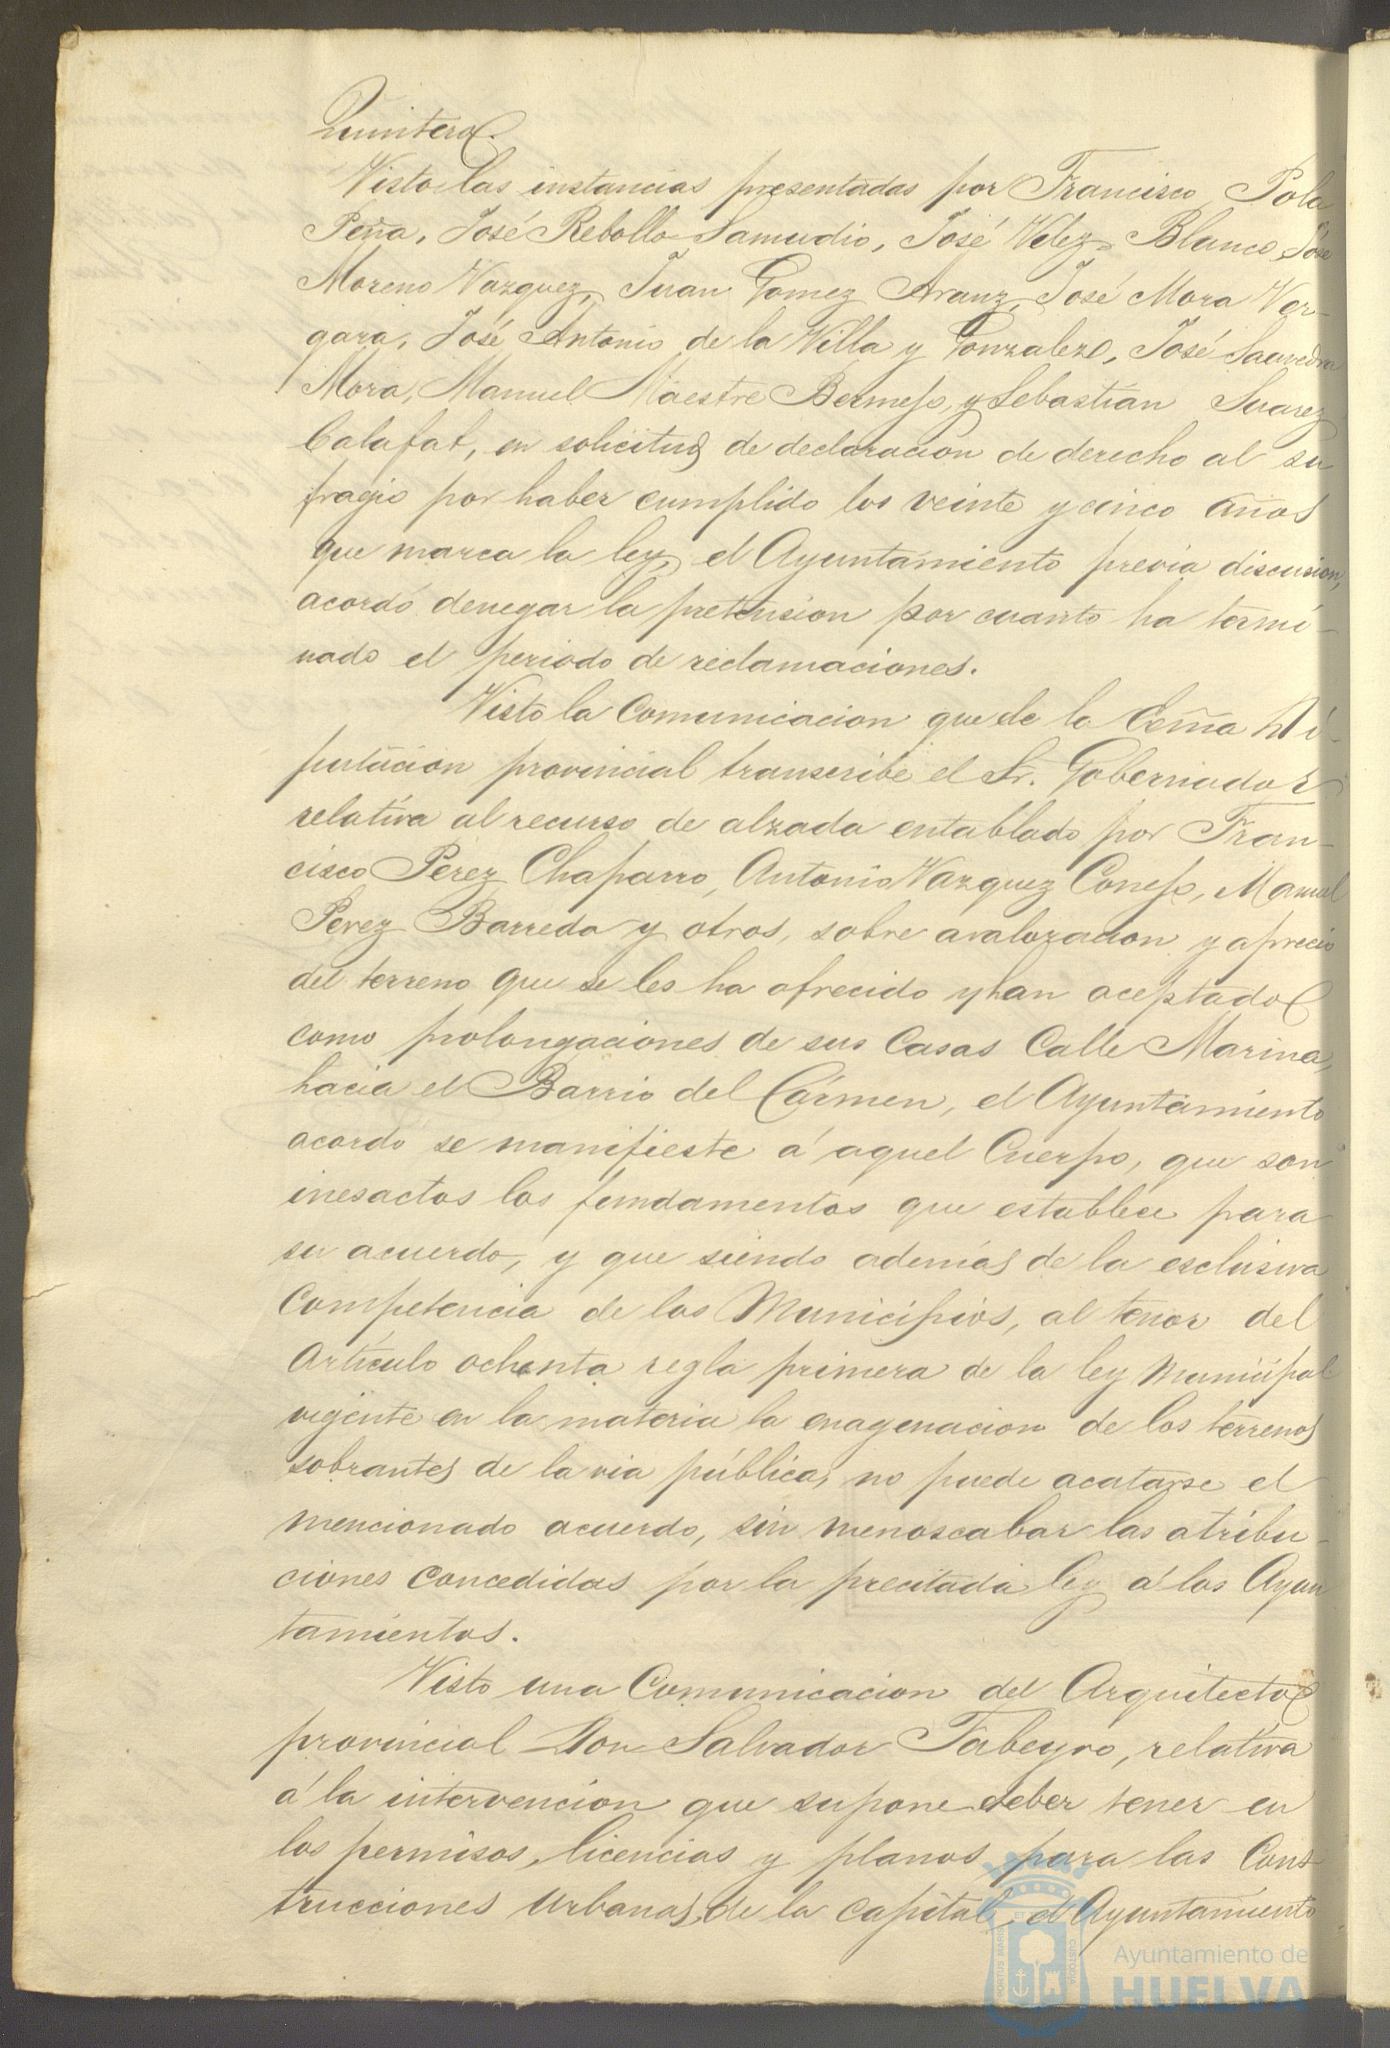 Quintero.
Visto las instancias presentadas por Francisco Pola
Peña, José Rebollo Samudio, José Velez Blanco, José
Moreno Vazquez, Juan Gomez Aranz, José Mora Ver-
gara, José Antonio de la Villa y Gonzalez, José Saavedra
Mora, Manuel Maestre Bermejo, y Sebastian Suarez
Calafat, en solicitud de declaracion de derecho al su
fragio por haber cumplido los veinte y cinco años
que marca la ley, el Ayuntamiento previa discusion,
acordó denegar la pretension por cuanto ha termi-
nado el periodo de reclamaciones.
Visto la Comunicacion que de la Ecma Di-
putacion provincial transcribe el Sr. Gobernador
relativa al recurso de alzada entablado por Fran-
cisco Perez Chaparro, Antonio Vazquez Conejo, Manuel
Perez Barreda y otros, sobre avaloracion y aprecio
del terreno que se les ha ofrecido y han aceptado
como prolongaciones de sus Casas Calle Marina,
hacia el Barrio del Cármen, el Ayuntamiento
acordo se manifieste á aquel Cuerpo, que son
inesactos los fundamentos que establece para
su acuerdo, y que siendo además de la esclusiva
Competencia de los Municipios, al tenor del
Artículo ochenta regla primera de la ley Municipal
vigente en la materia la enagenacion de los terrenos
sobrantes de la via pública, no puede acatarse el
mencionado acuerdo, sin menoscabar las atribu-
ciones concedidas por la precitada ley á los Ayun
tamientos.
Visto una Comunicacion del Arquitecto
provincial Don Salvador Torbeyro, relativa
á la intervencion que supone deber tener en
los permisos, licencias y planos para las Cons-
trucciones Urbanas de la Capital, el Ayuntamiento
PORTUS MARIS ET TERRAE CUSTODIA
Ayuntamiento de
HUELVA